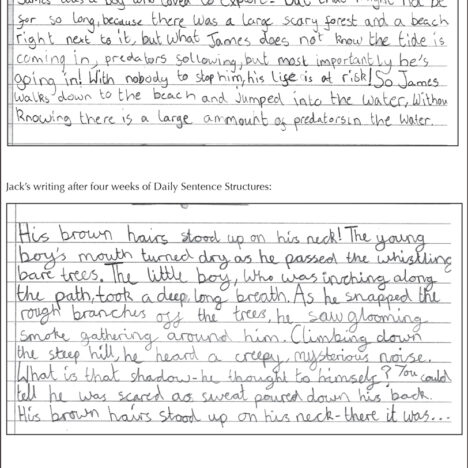 for so long, because there was a large scary forest and a beach
right next to it, but what James does not know the tide is
coming in, predators sollowing, but most importantly he's
going in! With nobody to stop him, his life is at risk! So James
walks down to the beach and Jumped into the water, Without
Knowing there is a large ammount of predators in the water.
Jack's writing after four weeks of Daily Sentence Structures:
His brown hairs stood up on his neck! The young
boy's mouth turned dry as he passed the whistling
bare trees. The little boy, Who was inching along
the path, took a deep, long breath. As he snapped the
rough branches off the trees, he saw glooming
smoke gathering around him. Climbing down
the steep hill, he heard a creepy, mysterious noise.
What is that shadow-he thought to himself? You could
tell he was scared as sweat poured down his back.
His brown hairs stood up on his neck-there it was...